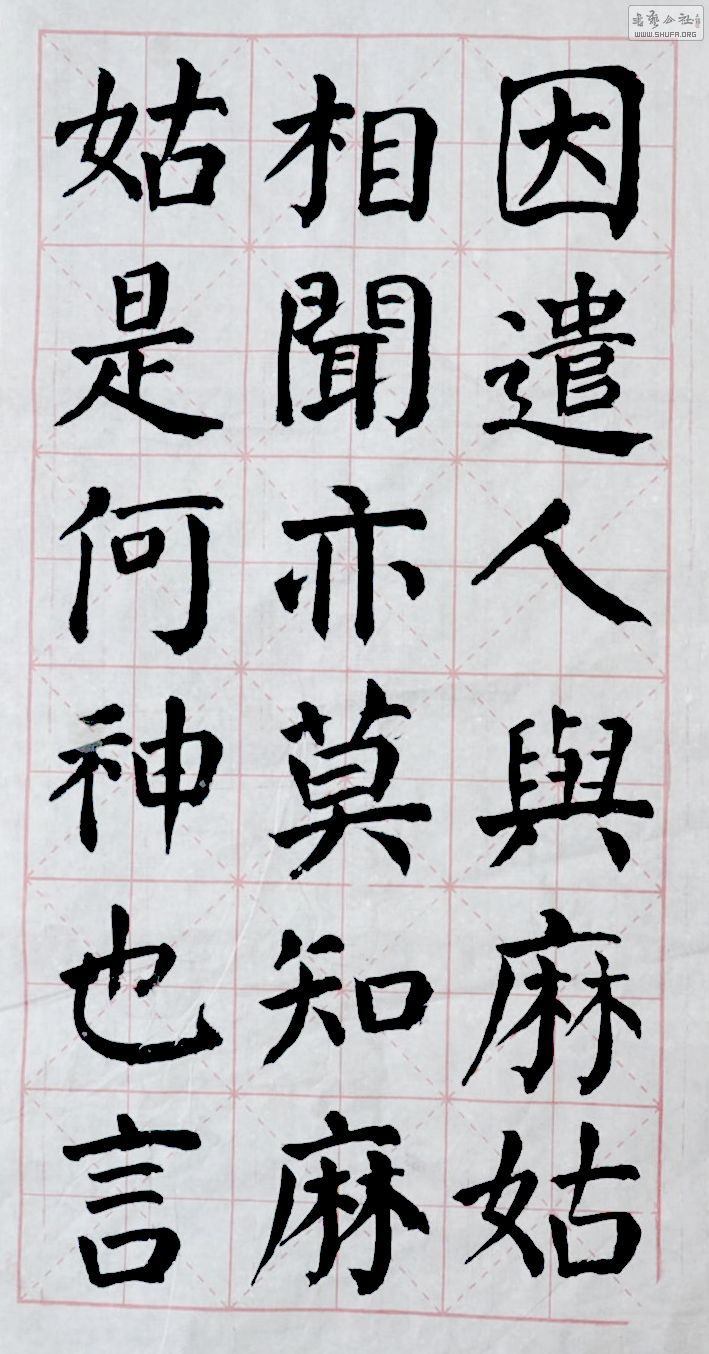 因遣人與麻姑
相聞亦莫知麻
姑是何神也言
WWW.SHUFA.ORG